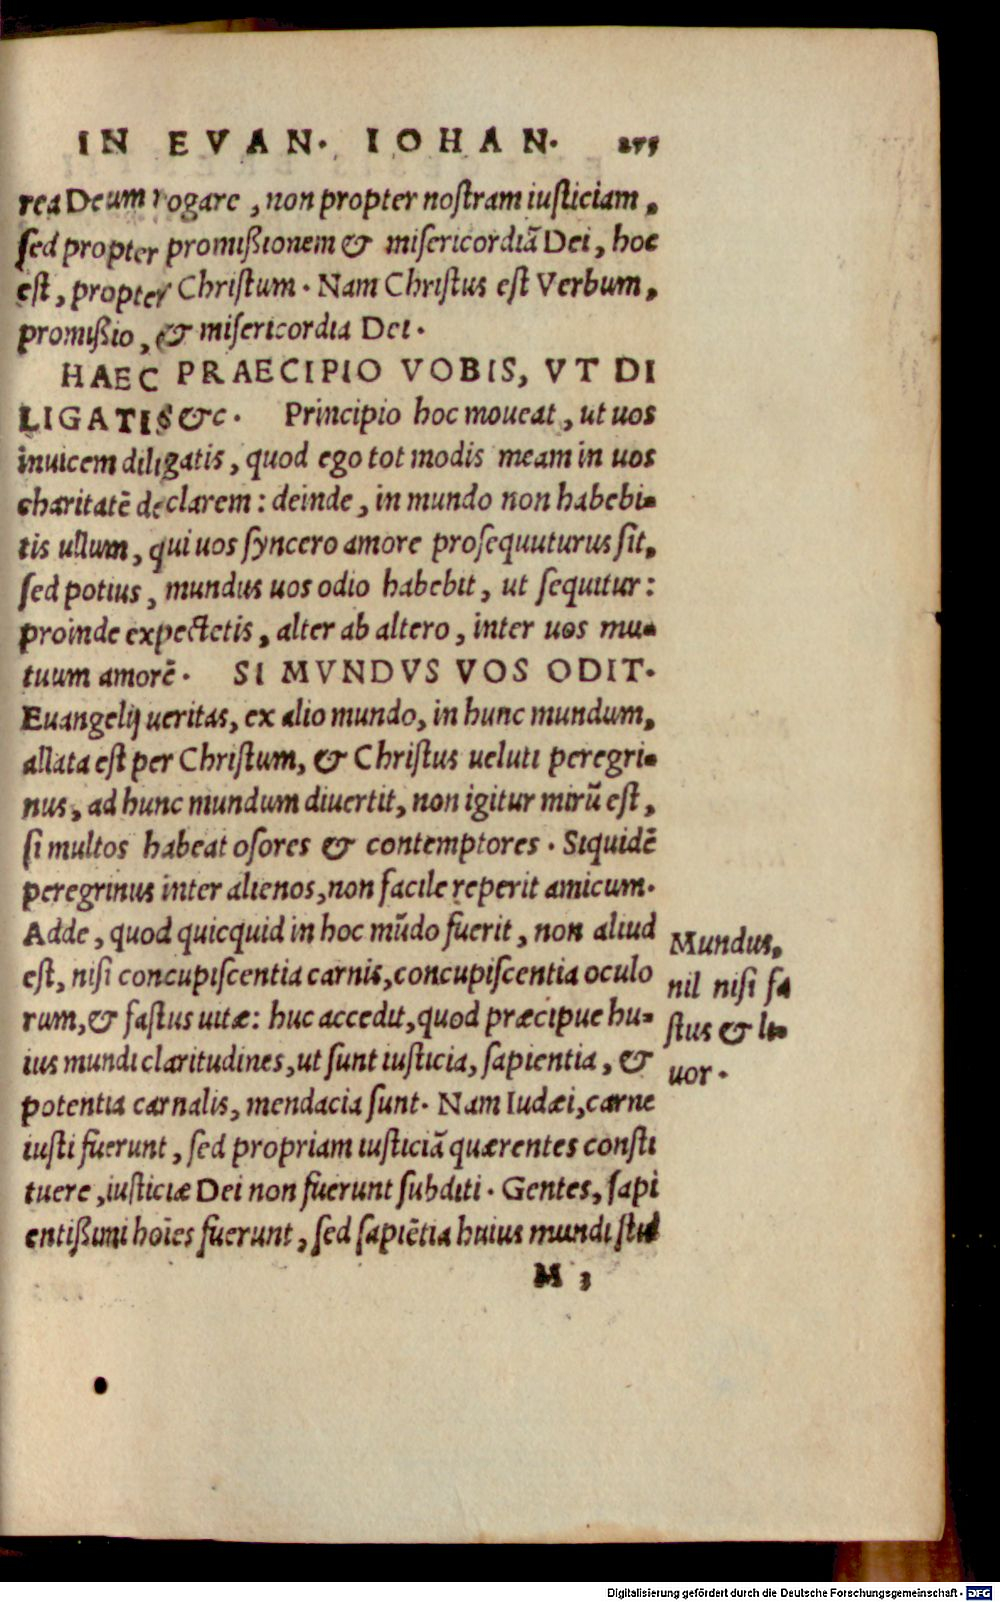 IN EVAN. IOHAN. 275
rea Deum rogare, non propter nostram iusticiam,
sed propter promißionem & misericordiā Dei, hoc
est, propter Christum. Nam Christus est Verbum,
promißio, & misericordia Dei.
HAEC PRAECIPIO VOBIS, VT DI
LIGATIS &c. Principio hoc moueat, ut uos
inuicem diligatis, quod ego tot modis meam in uos
charitatē declarem: deinde, in mundo non habebi-
tis ullum, qui uos syncero amore prosequuturus sit,
sed potius, mundus uos odio habebit, ut sequitur:
proinde expectetis, alter ab altero, inter uos mu-
tuum amorē. SI MVNDVS VOS ODIT.
Euangelij ueritas, ex alio mundo, in hunc mundum,
allata est per Christum, & Christus ueluti peregri-
nus, ad hunc mundum diuertit, non igitur mirū est,
si multos habeat osores & contemptores. Siquidē
peregrinus inter alienos, non facile reperit amicum.
Adde, quod quicquid in hoc mūdo fuerit, non aliud
est, nisi concupiscentia carnis, concupiscentia oculo
rum, & fastus uitæ: huc accedit, quod præcipue hu-
ius mundi claritudines, ut sunt iusticia, sapientia, &
potentia carnalis, mendacia sunt. Nam Iudæi, carne
iusti fuerunt, sed propriam iusticiā quærentes consti
tuere, iusticiæ Dei non fuerunt subditi. Gentes, sapi
entißimi hoīes fuerunt, sed sapiētia huius mundi stul
M 3
Mundus,
nil nisi fa
stus & li-
uor.
Digitalisierung gefördert durch die Deutsche Forschungsgemeinschaft - DFG